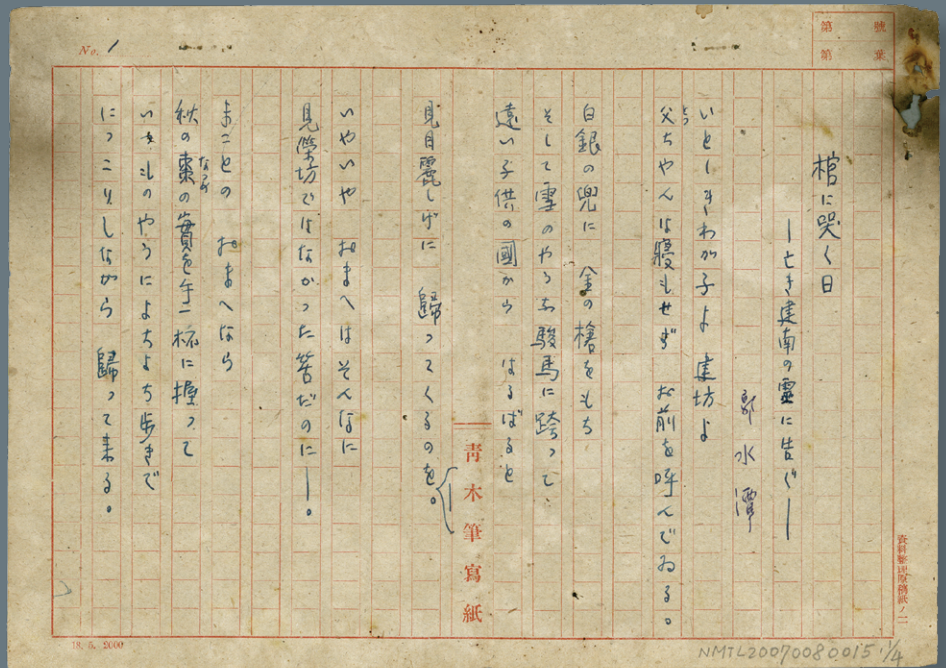 第　號
第　葉
No. 1
棺に哭く日
―亡き建南の靈に告ぐ―
郭水潭
いとしきわが子よ　建坊よ
父ちやんは寢もせず　お前を呼んでゐる。
とう
白銀の兜に　金の槍をもち
そして雪のやうな駿馬に跨って、
遠い子供の國から　はるばると
見目麗しげに　歸ってくるのを。
いやいや　おまへはそんなに
見榮坊ではなかった筈だのに―。
まことの　おまへなら
秋の棗の實を手一杯に握って
なつめ
いつものやうによちよち歩きで
にっこりしながら　歸って来る。
青木筆寫紙
資料整理原稿紙ノ二
18. 5. 2000
NMTL20070080015 1/4